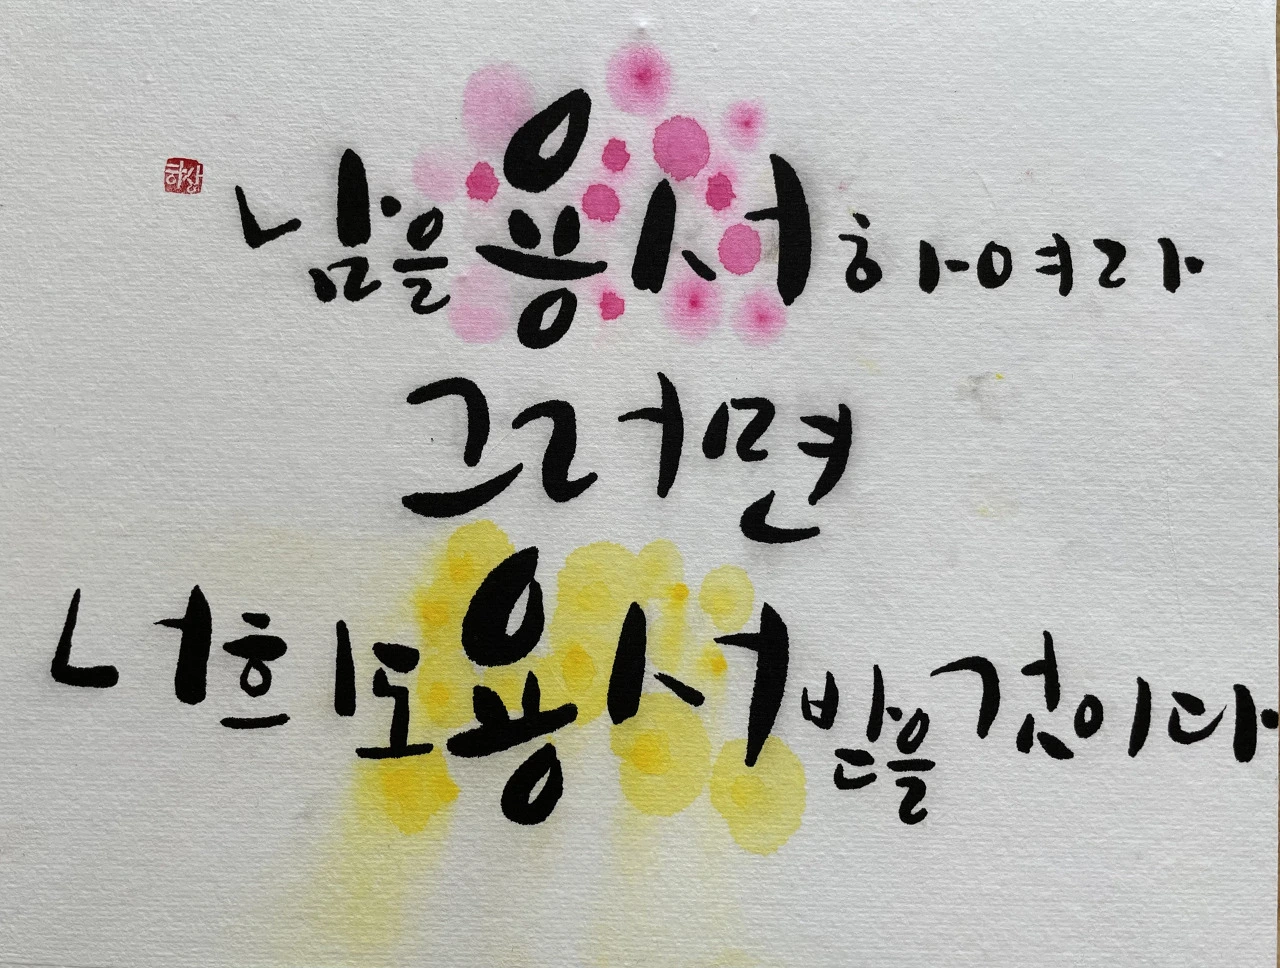 남을 용서하여라
그러면
너희도 용서받을 것이다